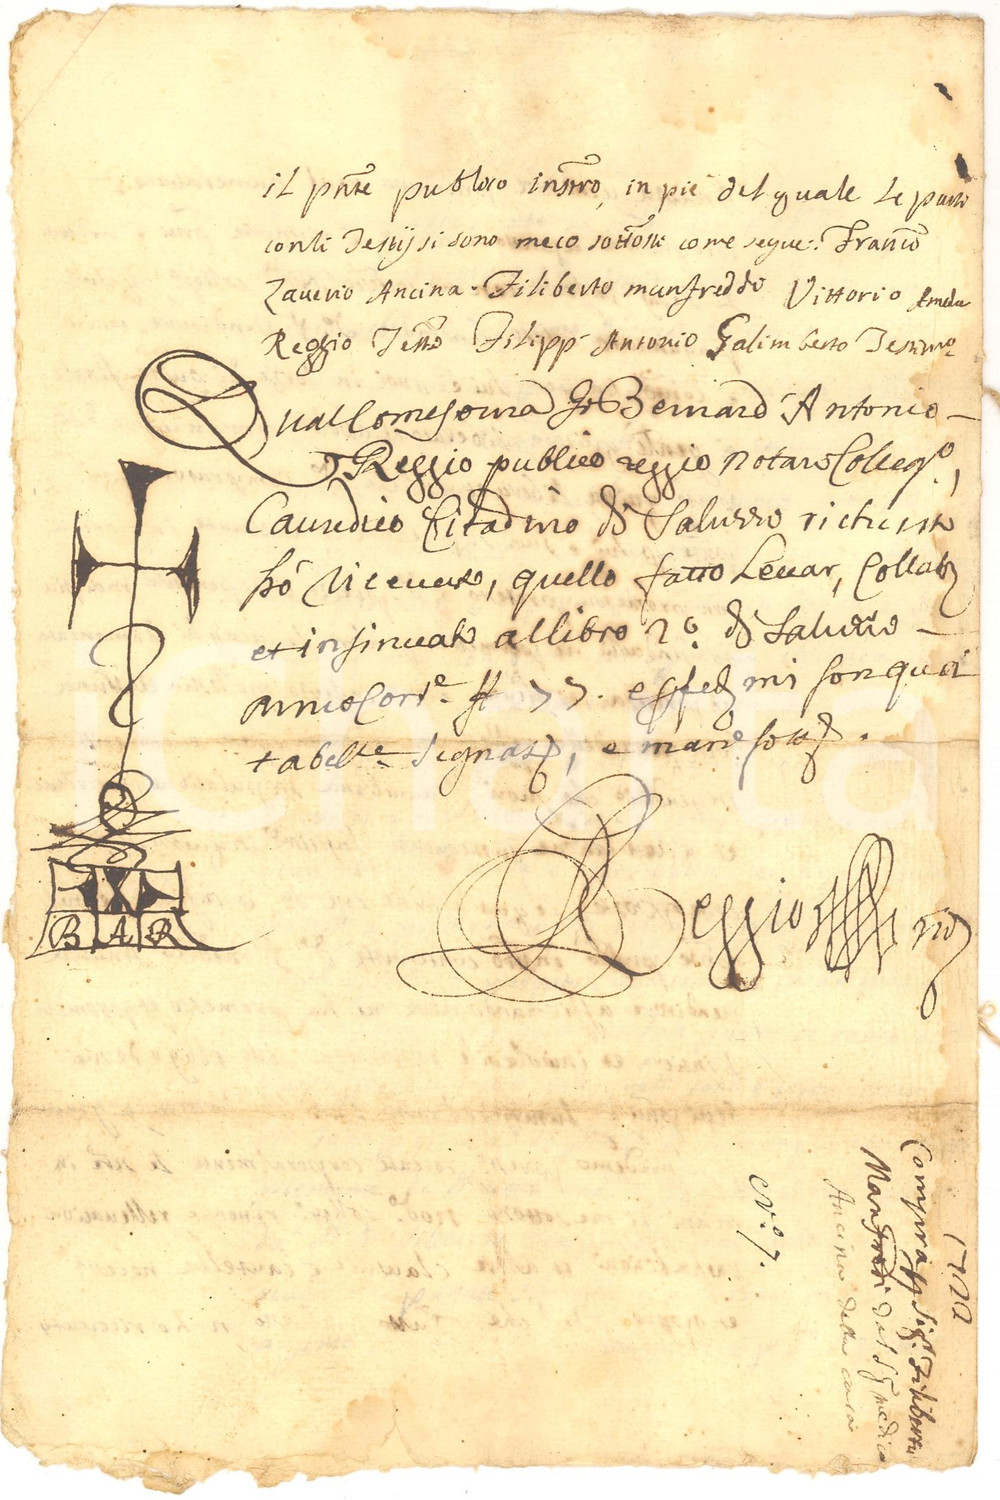 il pnte publoro instro, in pie del quale le parti
con li testij si sono meco sottoste come segue: Franco
Zaverio Ancina. Filiberto manfreddo Vittorio Amede
Reggio Testo Filipp Antonio Galimberto Testimo
Qual come sovra Io Bernard Antonio
Reggio publico reggio notaro Colleg.o,
Causidico Citadino di Saluzzo richiesto
hò ricevuto, quello fatto Levar,
et insinuato al libro 2.o di Saluzzo
anno Corr.e ff 77. e mi son qui
tabell.e segnato, e man.e
Reggio
B A R
1722
Compra Sig.r Filiberto
Manfredi del Sig medico
Ancina della casa
N.o 7.